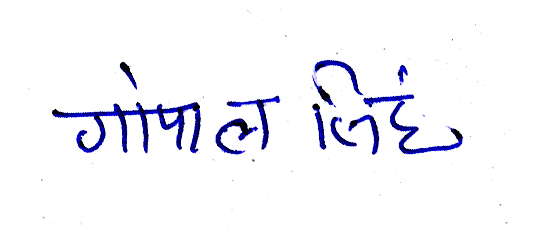 गोपाल सिहं